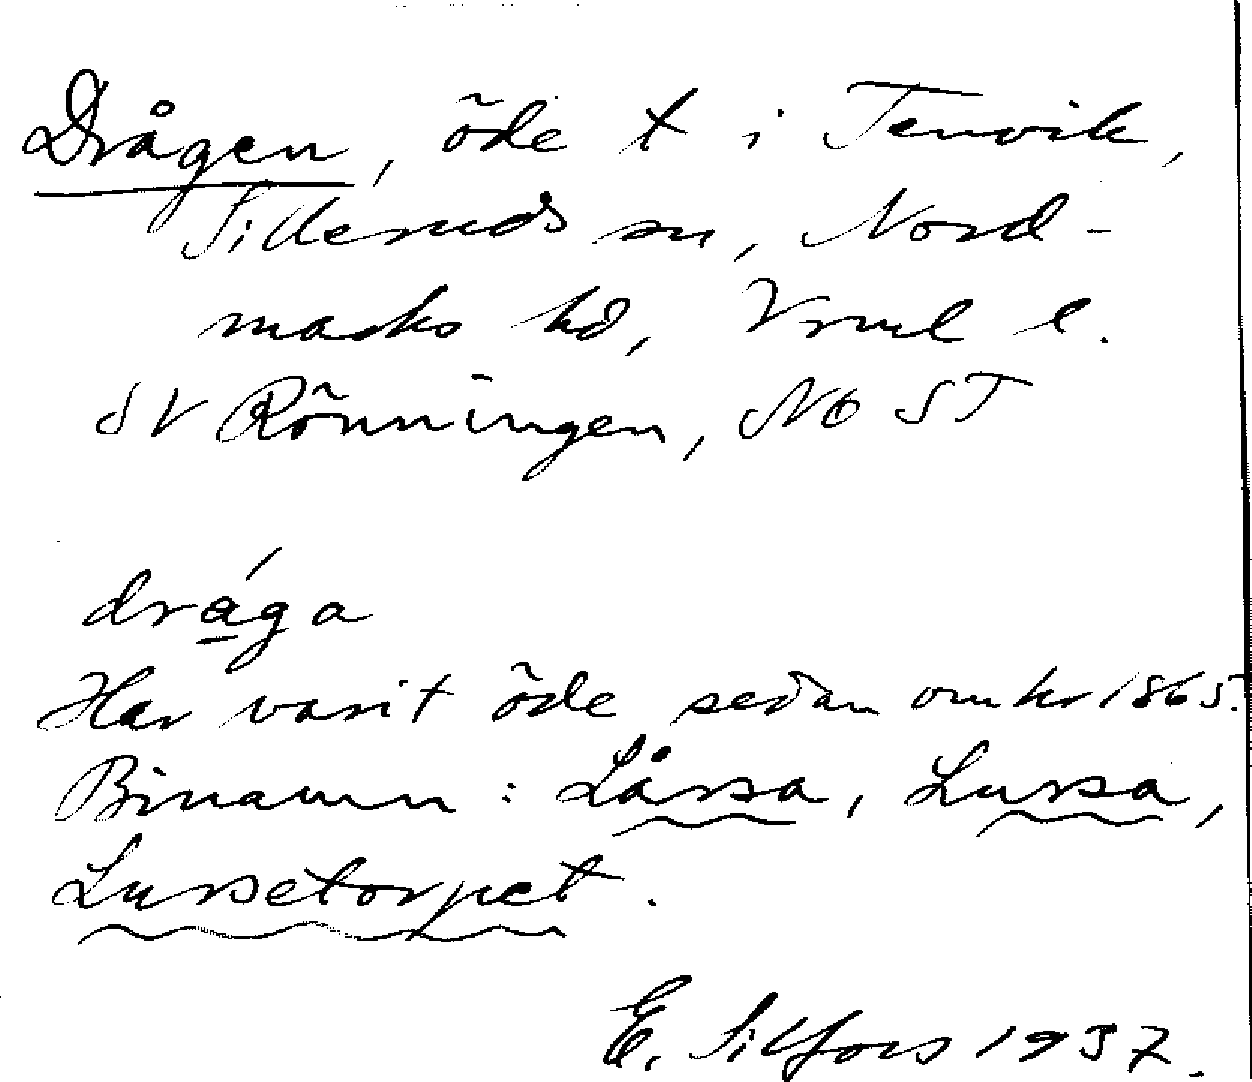 Drågen, öde t i Tenvik,
Silleruds sn, Nord-
marks hd, Vrml l.
SV Rönningen, NO ST
drága
Har varit öde sedan omkr 1865.
Binamn: Låssa, Lussa,
Lussetorpet.
E. Silfors 1937.